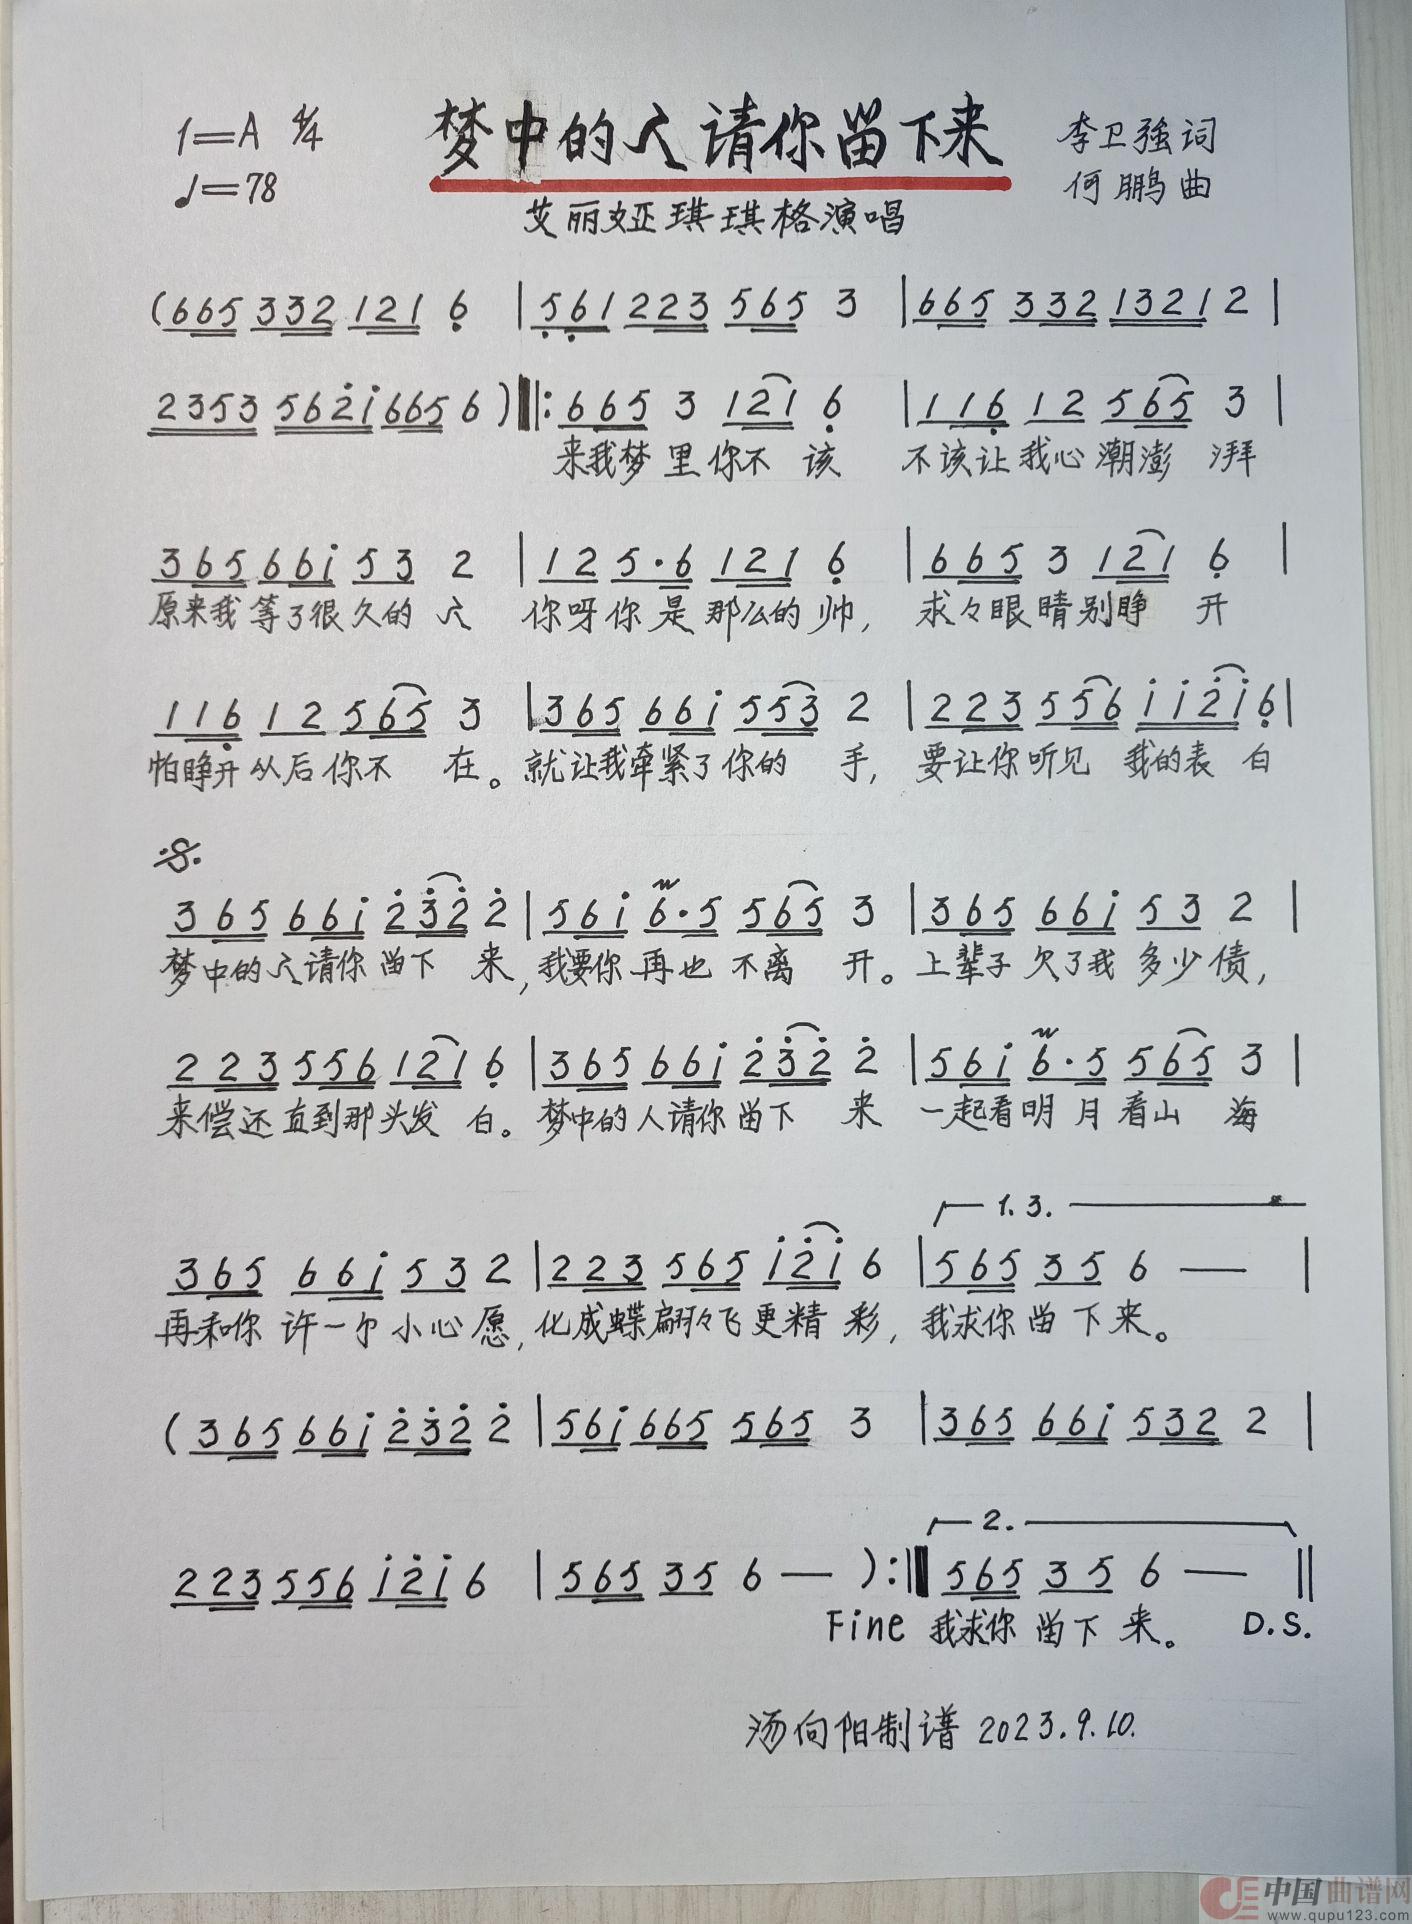 1=A 4/4
梦中的人请你留下来
李卫强词
♩=78
何鹏曲
艾丽娅琪琪格演唱
(665 332 121 6 | 561 223 565 3 | 665 332 1321 2 |
2353 562i 665 6 )‖: 665 3 121 6 | 116 12 565 3 |
来我梦里你不该 不该让我心潮澎湃
365 66i 53 2 | 12 5·6 121 6 | 665 3 121 6 |
原来我等了很久的人 你呀你是那么的帅, 求々眼睛别睁开
116 12 565 3 | 365 66i 553 2 | 223 556 ii2i 6 |
怕睁开从后你不在。就让我牵紧了你的手, 要让你听见我的表白
𝄋
365 66i 232 2 | 56i 6·5 565 3 | 365 66i 53 2 |
梦中的人请你留下来, 我要你再也不离开。上辈子欠了我多少债,
223 556 121 6 | 365 66i 232 2 | 56i 6·5 565 3 |
来偿还直到那头发白。梦中的人请你留下来 一起看明月看山海
1. 3.
365 66i 53 2 | 223 565 i2i 6 | 565 35 6 — |
再和你许一个小心愿, 化成蝶翩々飞更精彩, 我求你留下来。
(365 66i 232 2 | 56i 665 565 3 | 365 66i 532 2 |
2.
223 556 i2i 6 | 565 35 6 — ):‖ 565 35 6 — ‖
Fine 我求你留下来。 D.S.
汤向阳制谱 2023.9.10.
中国曲谱网
www.qupu123.com